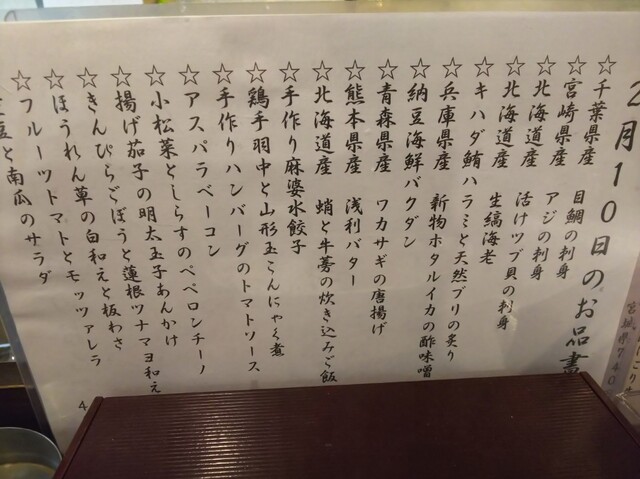 2月10日のお品書
☆千葉県産 目鯛の刺身
☆宮崎県産 アジの刺身
☆北海道産 活けツブ貝の刺身
☆北海道産 生縞海老
☆キハダ鮪ハラミと天然ブリの炙り
☆兵庫県産 新物ホタルイカの酢味噌
☆納豆海鮮バクダン
☆青森県産 ワカサギの唐揚げ
☆熊本県産 浅利バター
☆北海道産 蛸と牛蒡の炊き込みご飯
☆手作り麻婆水餃子
☆鶏手羽中と山形玉こんにゃく煮
☆手作りハンバーグのトマトソース
☆アスパラベーコン
☆小松菜としらすのペペロンチーノ
☆揚げ茄子の明太玉子あんかけ
☆きんぴらごぼうと蓮根ツナマヨ和え
☆ほうれん草の白和えと板わさ
☆フルーツトマトとモッツァレラ
豆と南瓜のサラダ